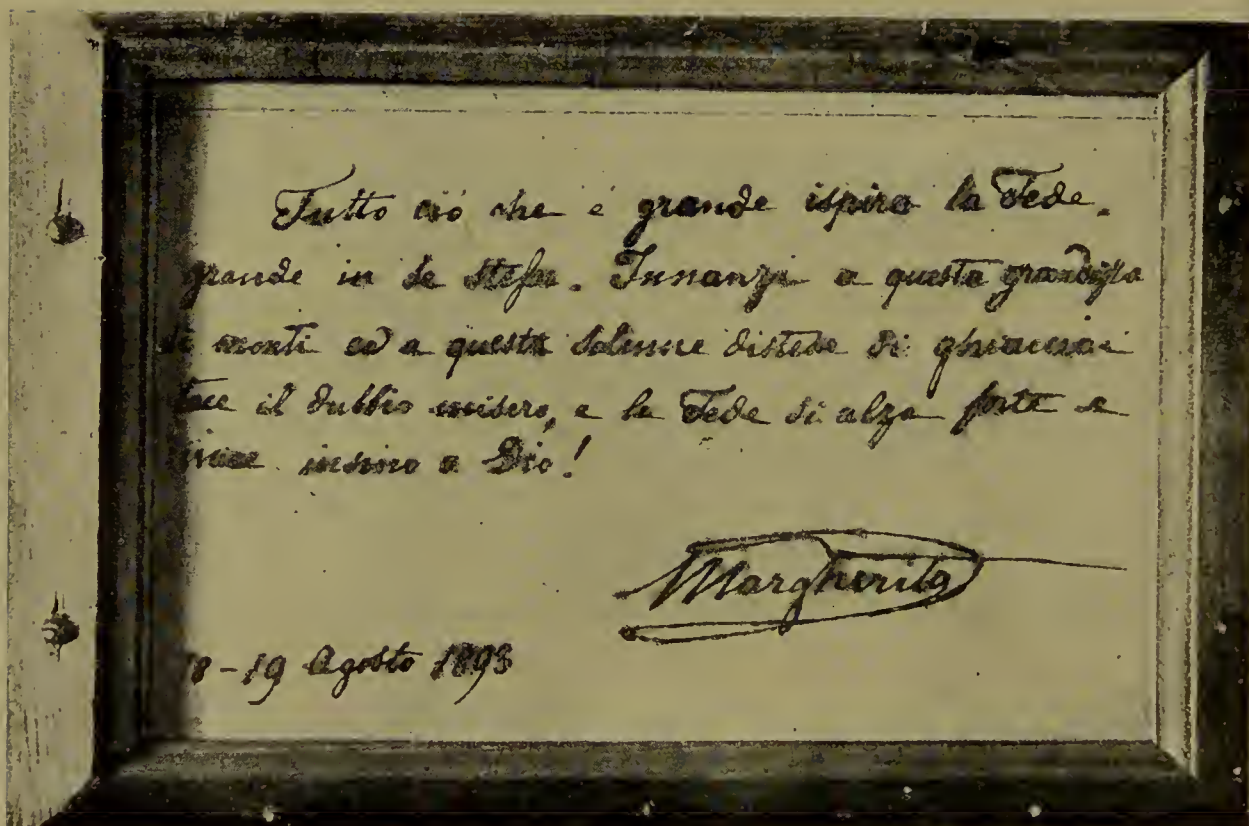 Tutto ció che é grande ispira la Fede,
grande in se stessa. Innanzi a questa grandezza
di monti ed a questa solenne distesa di ghiacciai
tace il dubbio misero, e la Fede si alza forte e
insino a Dio!
Margherita
8-19 Agosto 1893